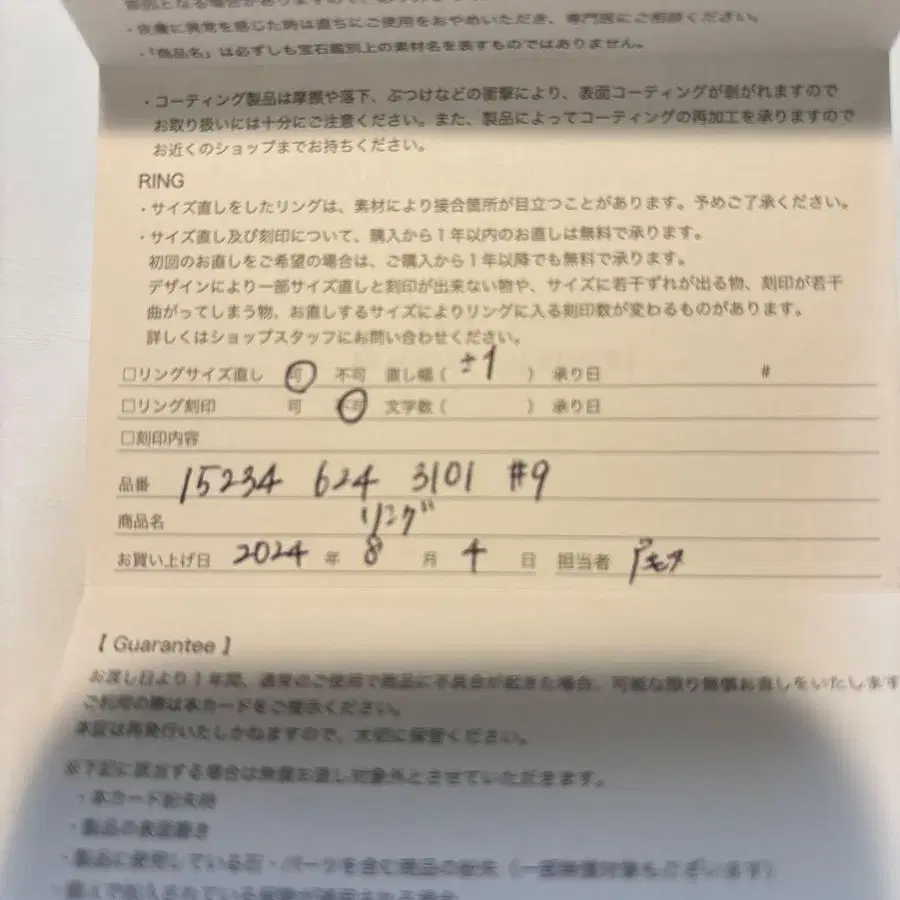 ・皮膚に異常を感じた時は直ちにご使用をおやめいただき、専門医にご相談ください。
・「商品名」は必ずしも宝石鑑別上の素材名を表すものではありません。
・コーティング製品は摩擦や落下、ぶつけなどの衝撃により、表面コーティングが剥がれますので
お取り扱いには十分にご注意ください。また、製品によってコーティングの再加工を承りますので
お近くのショップまでお持ちください。
RING
・サイズ直しをしたリングは、素材により接合箇所が目立つことがあります。予めご了承ください。
・サイズ直し及び刻印について、購入から1年以内のお直しは無料で承ります。
初回のお直しをご希望の場合は、ご購入から1年以降でも無料で承ります。
デザインにより一部サイズ直しと刻印が出来ない物や、サイズに若干ずれが出る物、刻印が若干
曲がってしまう物、お直しするサイズによりリングに入る刻印数が変わるものがあります。
詳しくはショップスタッフにお問い合わせください。
□リングサイズ直し 可 不可 直し幅( ±1 ) 承り日 #
□リング刻印 可 不可 文字数( ) 承り日
□刻印内容
品番 15234 624 3101 #9
商品名 リング
お買い上げ日 2024 年 8 月 4 日 担当者
【 Guarantee 】
お渡し日より1年間、通常のご使用で商品に不具合が起きた場合、可能な限り無償お直しをいたします
ご利用の際は本カードをご提示ください。
本証は再発行いたしかねますので、大切に保管ください。
※下記に該当する場合は無償お直し対象外とさせていただきます。
・本カード紛失時
・製品の表面磨き
・製品に使用している石・パーツを含む商品の紛失（一部無償対象もございます）